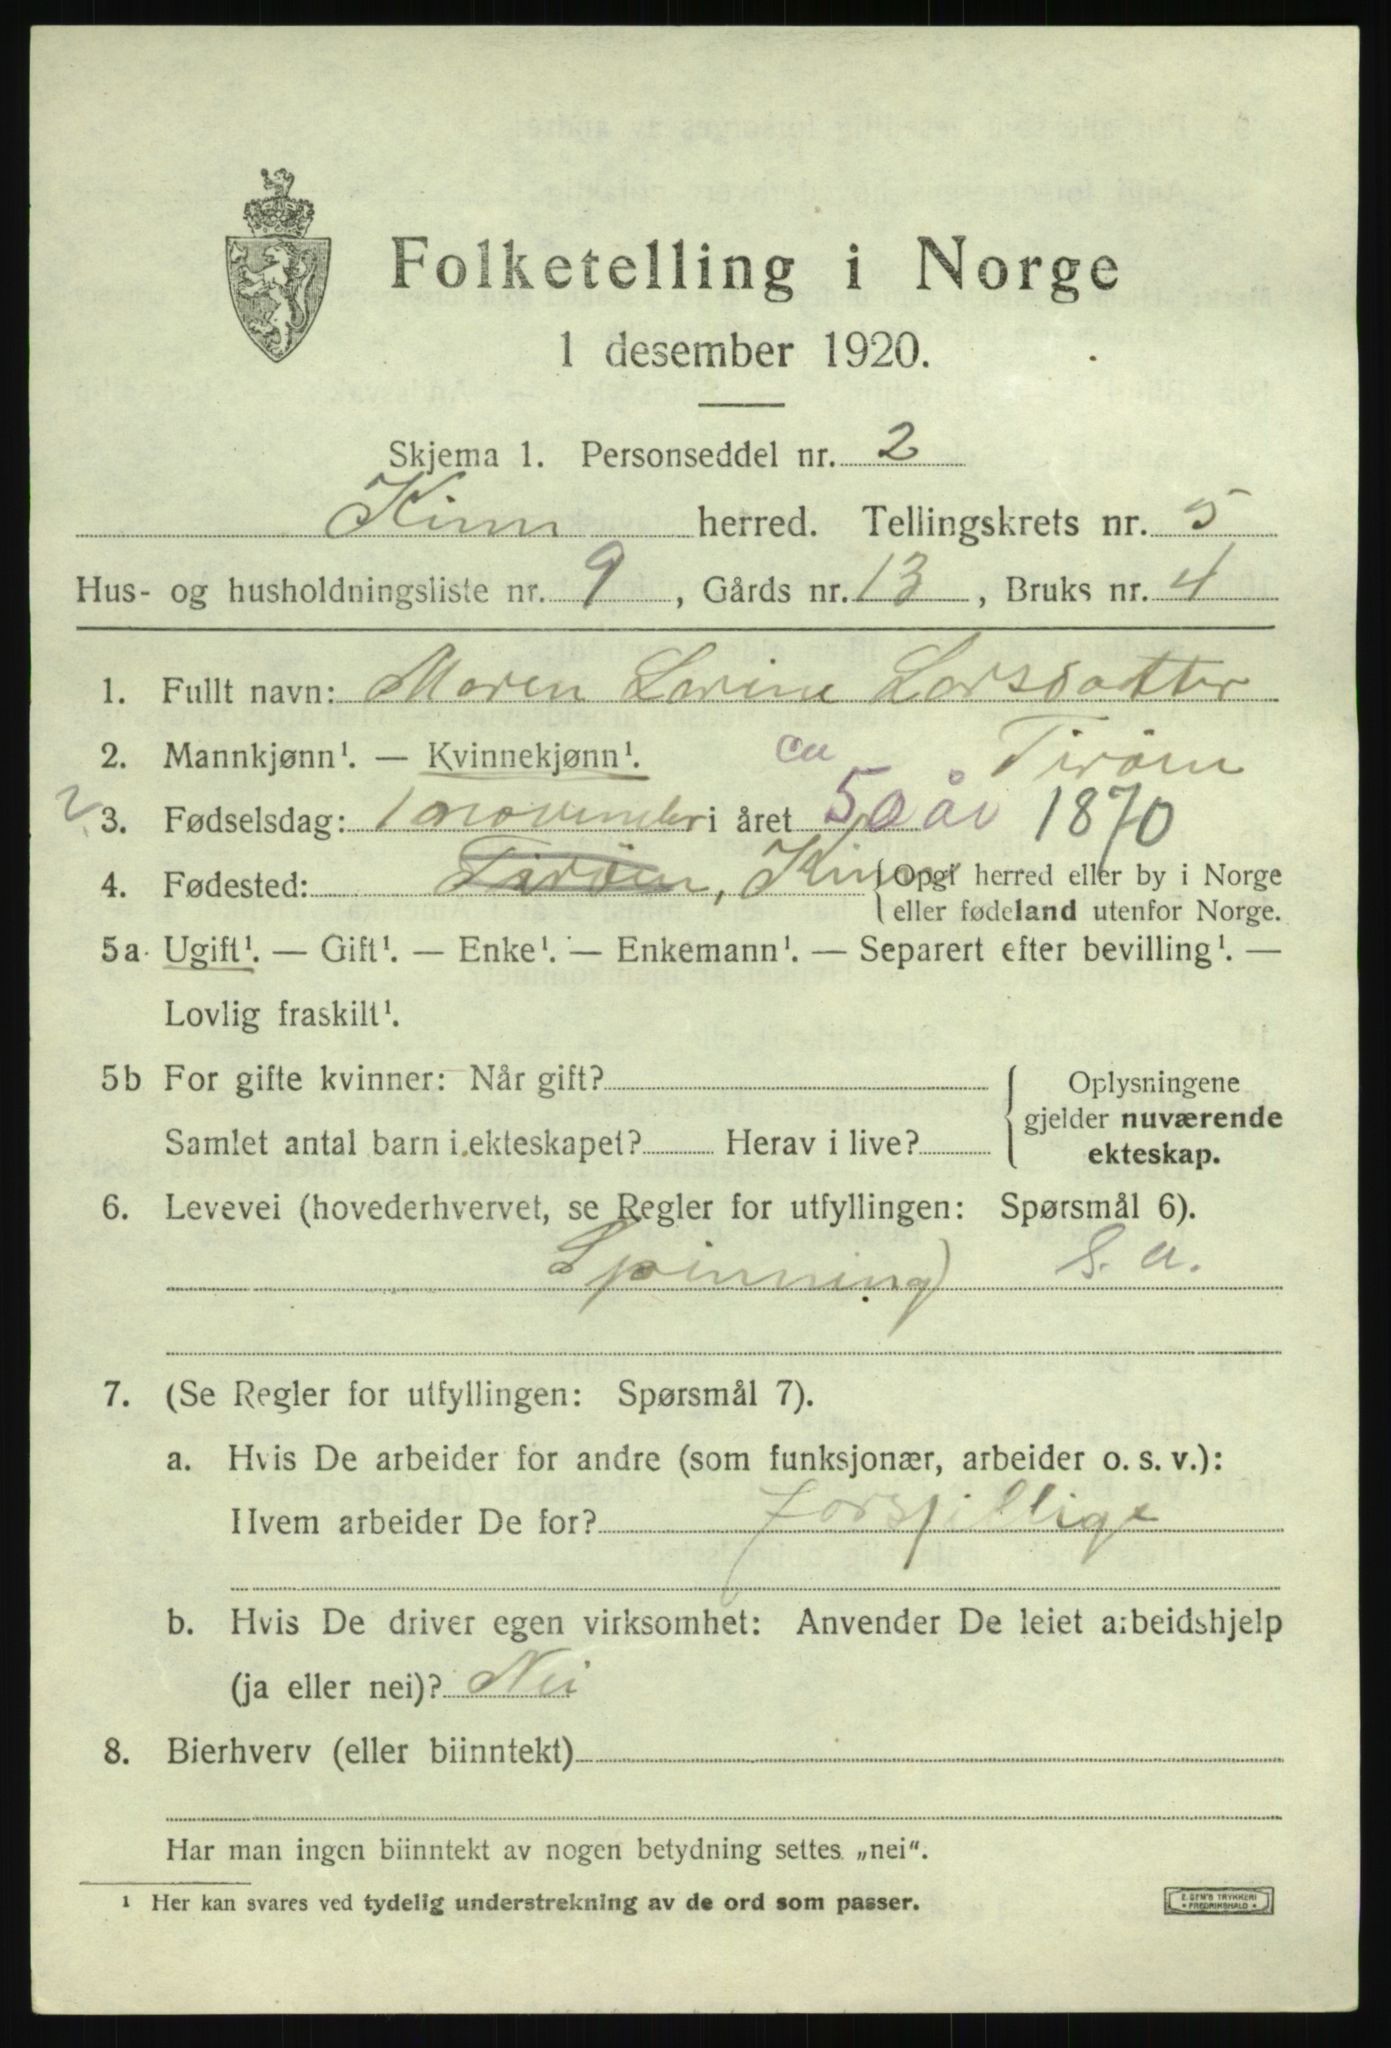 Folketelling i Norge
1 desember 1920.
Skjema 1. Personseddel nr. 2
Kinn herred. Tellingskrets nr. 5
Hus- og husholdningsliste nr. 9, Gårds nr. 13, Bruks nr. 4
1. Fullt navn: Maren Larine Larsdatter
2. Mannkjønn¹. — Kvinnekjønn¹. ca
3. Fødselsdag: 1 november i året 50 år 1870
4. Fødested: Kinn {Opgi herred eller by i Norge
eller fødeland utenfor Norge.
5a Ugift¹. — Gift¹. — Enke¹. — Enkemann¹. — Separert efter bevilling¹. —
Lovlig fraskilt¹.
5b For gifte kvinner: Når gift? { Oplysningene
gjelder nuværende
Samlet antal barn i ekteskapet? Herav i live? ekteskap.
6. Levevei (hovederhvervet, se Regler for utfyllingen: Spørsmål 6).
Spinning) S. a.
7. (Se Regler for utfyllingen: Spørsmål 7).
a. Hvis De arbeider for andre (som funksjonær, arbeider o. s. v.):
Hvem arbeider De for? forsjillige
b. Hvis De driver egen virksomhet: Anvender De leiet arbeidshjelp
(ja eller nei)? Nei
8. Bierhverv (eller biinntekt)
Har man ingen biinntekt av nogen betydning settes „nei“.
¹ Her kan svares ved tydelig understrekning av de ord som passer.
E. SEM'S TRYKKERI
* FREDRIKSHALD *